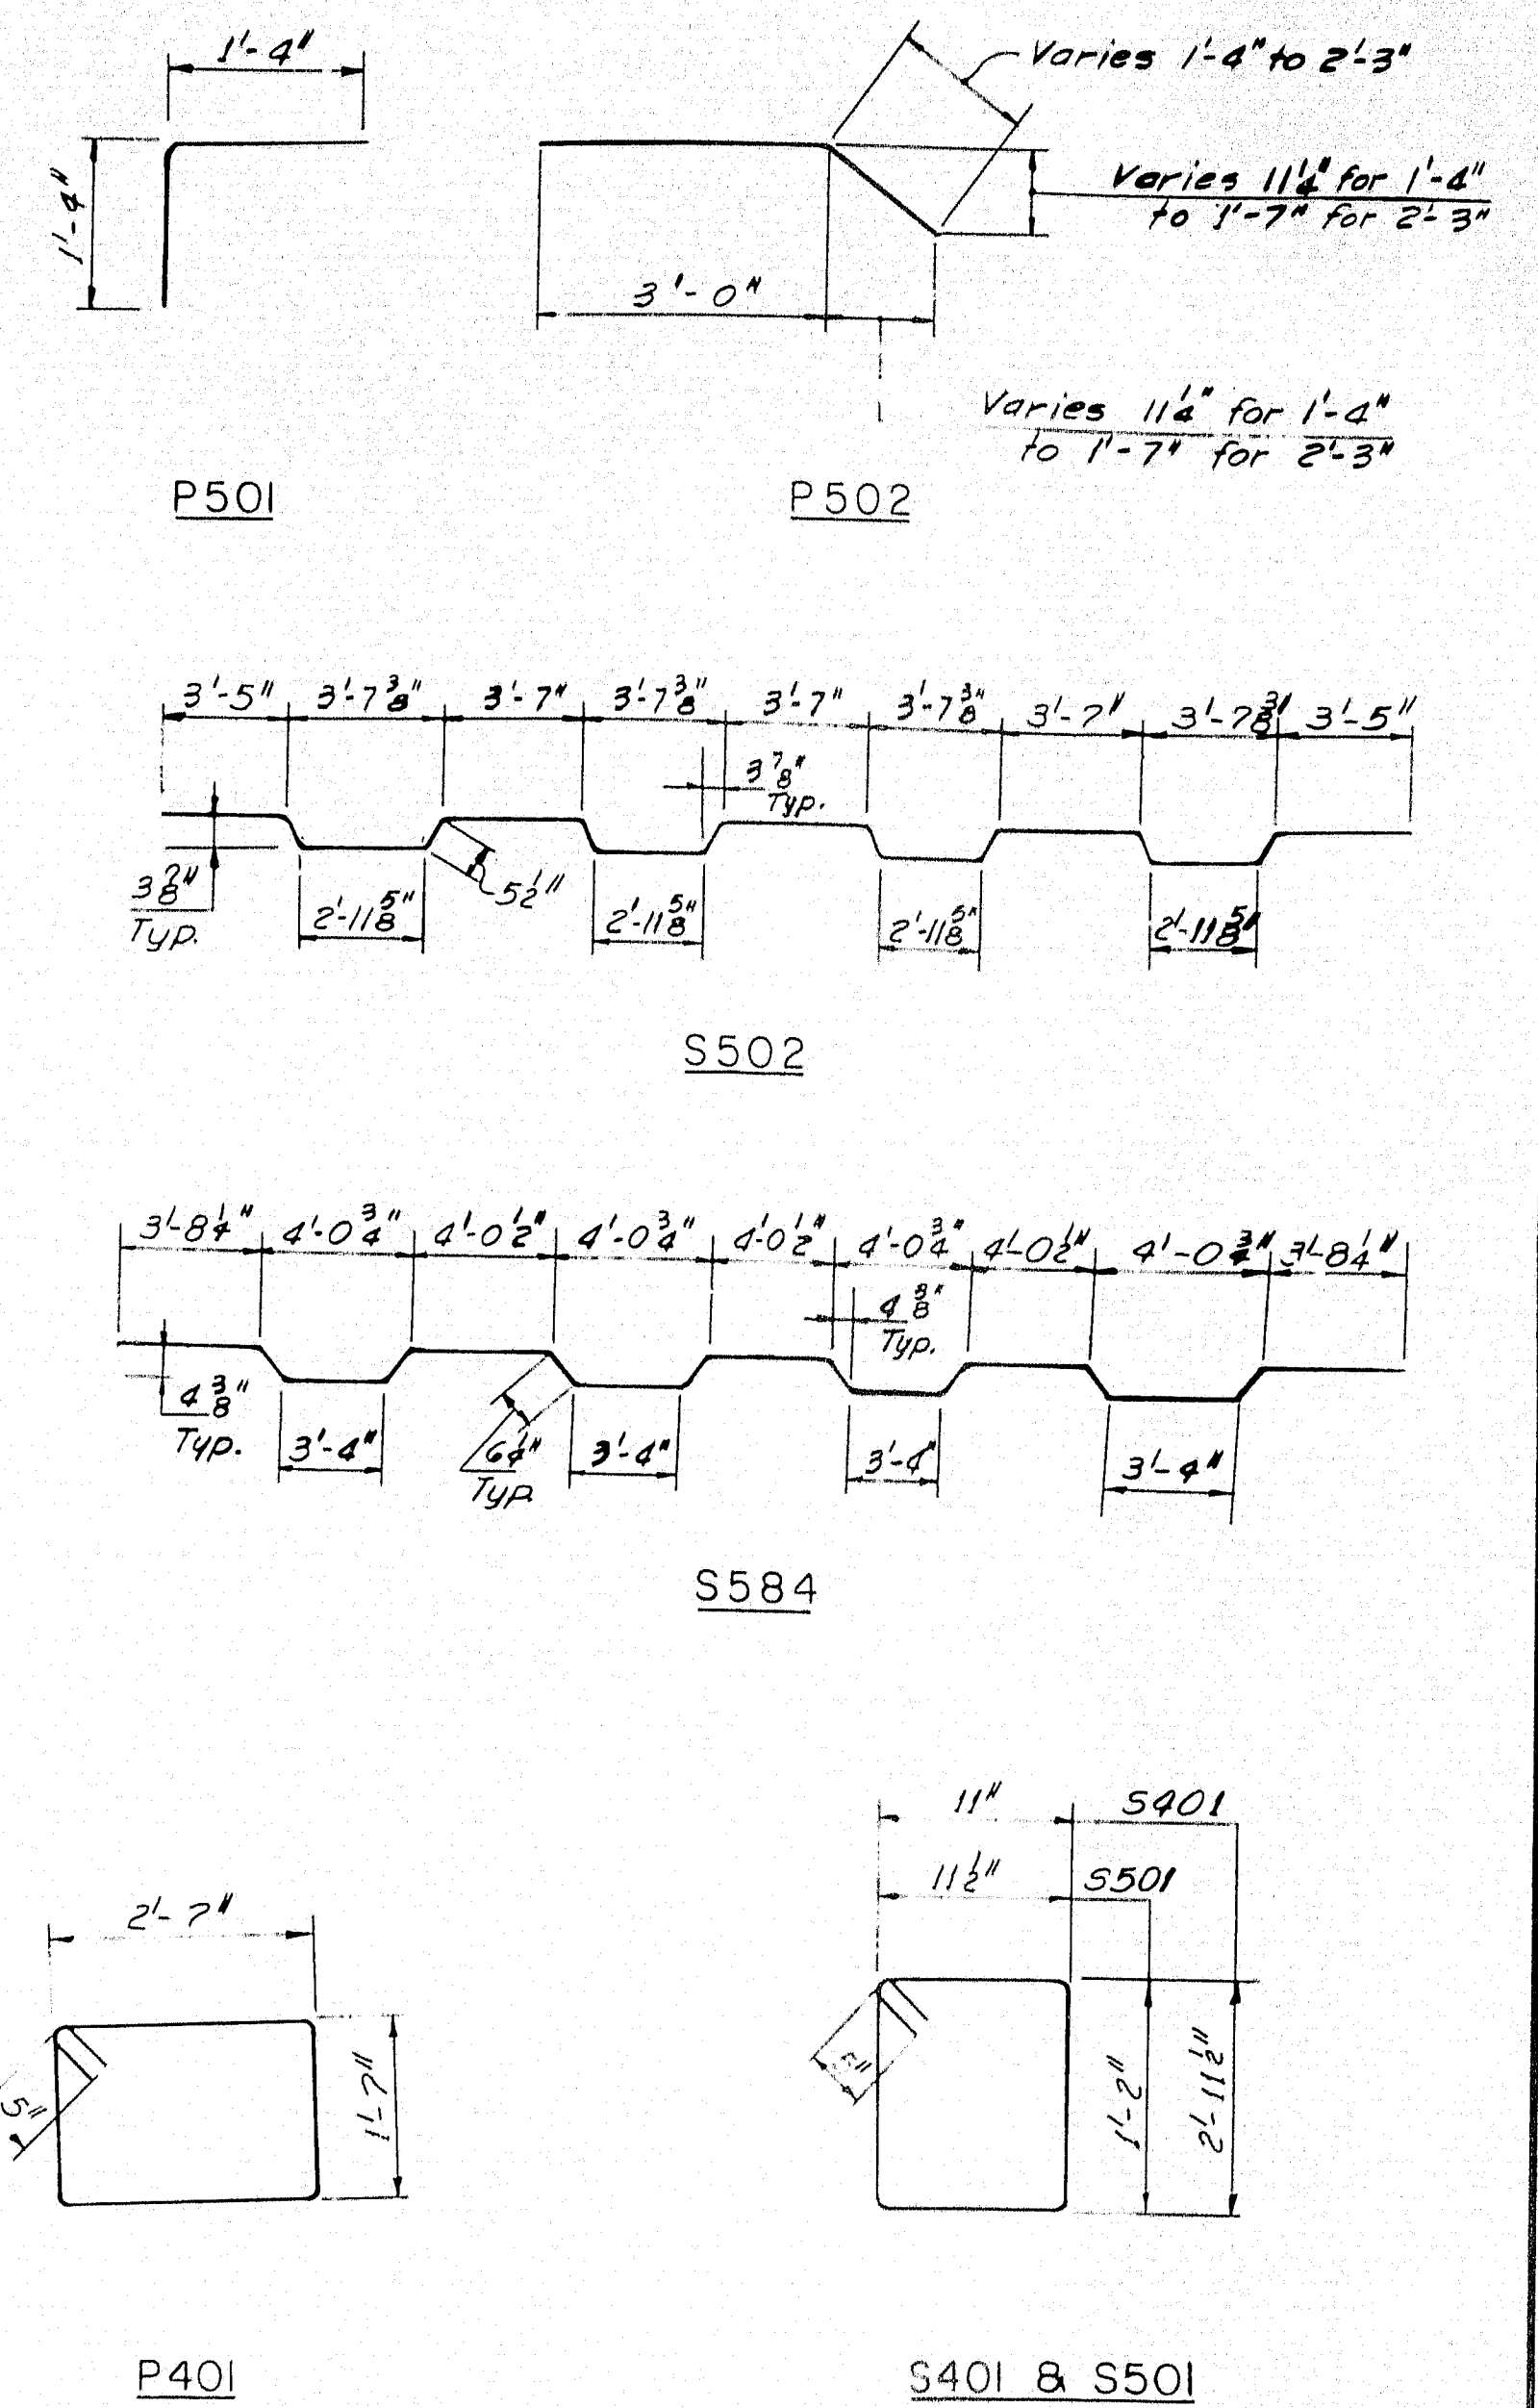 1'-4"
Varies 1'-4" to 2'-3"
1'-4"
Varies 11 1/4" for 1'-4"
to 1'-7" for 2'-3"
3'-0"
Varies 11 1/4" for 1'-4"
to 1'-7" for 2'-3"
P501
P502
3'-5" 3'-7 3/8" 3'-7" 3'-7 3/8" 3'-7" 3'-7 3/8" 3'-7" 3'-7 3/8" 3'-5"
3 7/8"
Typ.
3 7/8"
Typ.
5 1/2"
2'-11 5/8" 2'-11 5/8" 2'-11 5/8" 2'-11 5/8"
S502
3'-8 1/4" 4'-0 3/4" 4'-0 1/2" 4'-0 3/4" 4'-0 1/2" 4'-0 3/4" 4'-0 1/2" 4'-0 3/4" 3'-8 1/4"
4 3/8"
Typ.
4 3/8"
Typ.
3'-4" 6 1/4" 3'-4" 3'-4" 3'-4"
Typ.
S584
11" S401
11 1/2" S501
2'-7"
5"
1'-7"
1'-2"
2'-11 1/2"
P401
S401 & S501